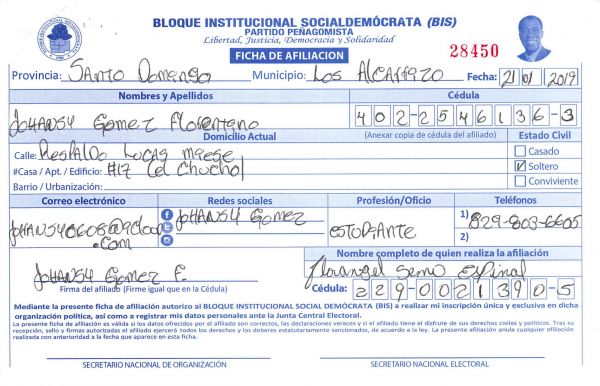 BLOQUE INSTITUCIONAL SOCIALDEMÓCRATA (BIS)
PARTIDO PEÑAGOMISTA
Libertad, Justicia, Democracia y Solidaridad
FICHA DE AFILIACION
28450
Provincia: Santo Domingo Municipio: Los Alcarrizo Fecha: 21 01 2019
Nombres y Apellidos Cédula
JOHANSY Gomez Florentino 402-2546136-3
Domicilio Actual (Anexar copia de cédula del afiliado) Estado Civil
Calle: Respaldo Lucas Maese
#Casa / Apt. / Edificio: #17 (el chucho)
Barrio / Urbanización:
Casado
Soltero
Conviviente
Correo electrónico Redes sociales Profesión/Oficio Teléfonos
.com
JOHANSY Gomez
ESTUDIANTE
1) 829-803-6605
2)
Nombre completo de quien realiza la afiliación
JOHANSY Gomez F.
Firma del afiliado (Firme igual que en la Cédula)
Cédula: 229-0021390-5
Mediante la presente ficha de afiliación autorizo al BLOQUE INSTITUCIONAL SOCIAL DEMÓCRATA (BIS) a realizar mi inscripción única y exclusiva en dicha
organización política, así como a registrar mis datos personales ante la Junta Central Electoral.
La presente ficha de afiliación es válida si los datos ofrecidos por el afiliado son correctos, las declaraciones veraces y si el afiliado tiene el disfrute de sus derechos civiles y políticos. Tras su
recepción, sello y firmas autorizadas el afiliado ejercerá todos los derechos y los deberes estatutariamente sancionados, de acuerdo a la ley. La presente afiliación anula cualquier afiliación
realizada con anterioridad a la fecha que aparece en esta ficha.
SECRETARIO NACIONAL DE ORGANIZACIÓN SECRETARIO NACIONAL ELECTORAL